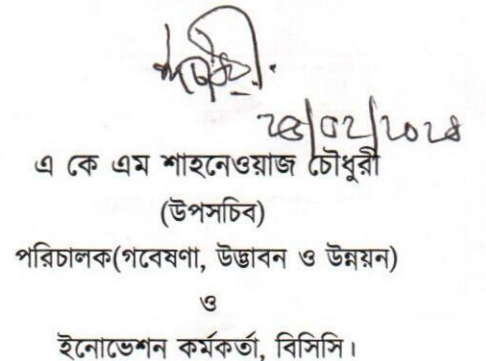 এ কে এম শাহনেওয়াজ চৌধুরী
(উপসচিব)
পরিচালক(গবেষণা, উদ্ভাবন ও উন্নয়ন)
ও
ইনোভেশন কর্মকর্তা, বিসিসি।